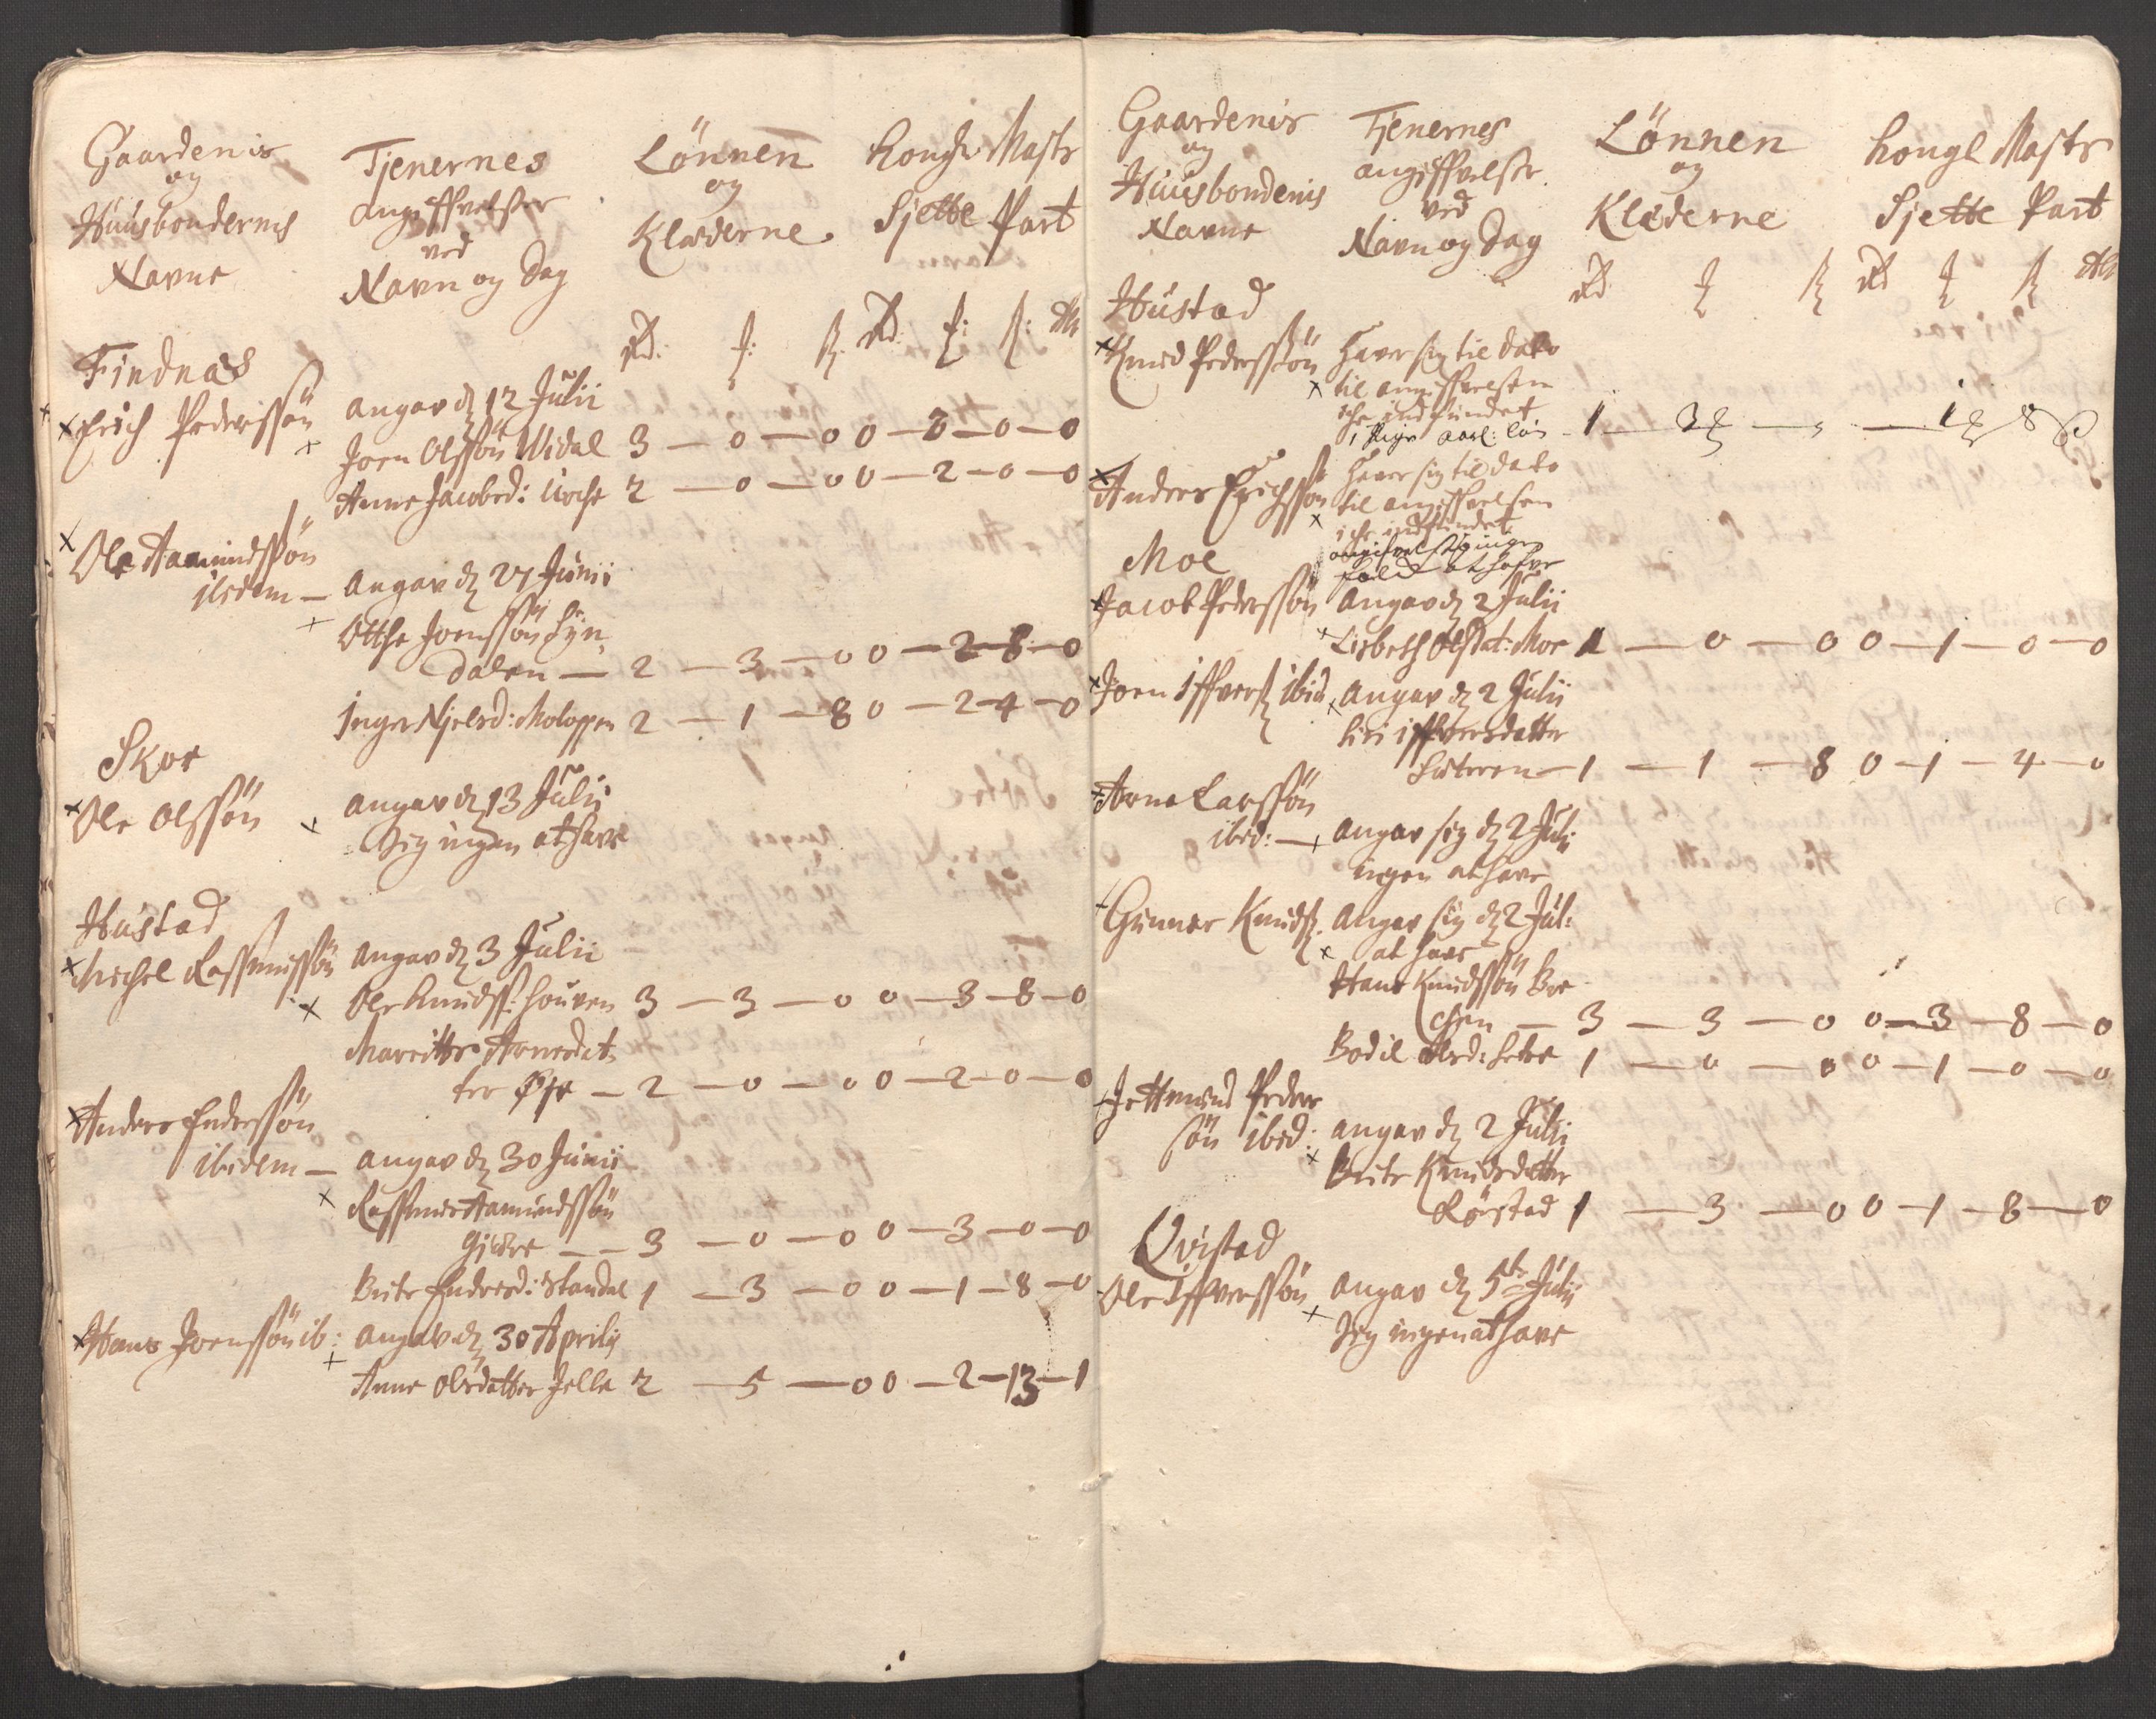 Gaardenis
og
Huusbondernis
Navne
Tjenernes
angiffvelser
ved
Navn og Dag
Lönnen
og
Klæderne
Kongl: Maits
Sjette Part
Rd: ß: Rd:
Findnæs
Erich Pederssøn
angav d 12 Julii
Joen Olssøn Widal 3 — 0 — 0 0 — 3 — 0 — 0
Anne Jacobsd: 2 — 0 — 0 0 — 2 — 0 — 0
Ole Aamundssøn
ibidem —
angav d 27 Junii
Otthe Joenssøn
dalen — 2 — 3 — 0 0 — 2 — 8 — 0
Inger Njelsd: Moloppen 2 — 1 — 8 0 — 2 — 4 — 0
Skor
Ole Olssøn
angav d 13 Julij
Sig ingen at have
Hustad
Michel Rassmussøn
angav d 3 Julii
Ole Knudss: Houven 3 — 3 — 0 0 — 3 — 8 — 0
Maritte Arnesdat
ter — 2 — 0 — 0 0 — 2 — 0 — 0
Anders Enderssøn
ibidem —
angav d 30 Junii
Rassmus Aamundssøn
Gidtre — 3 — 0 — 0 0 — 3 — 0 — 0
Brite Endresd: Standal 1 — 3 — 0 0 — 1 — 8 — 0
Hans Joenssøn ib:
angav d 30 Aprilis
Anne Olsdatter Jelle 2 — 5 — 0 0 — 2 — 13 — 1
Gaardenis
og
Huusbondenis
Navne
Tjenernes
angiffvelse
ved
Navn og Dag
Lönnen
og
Klæderne
Kongl Maits
Sjette Part
Rd ß Rd ß
Hustad
Knud Pederssøn
Haver sig til dato
til angiffvelsen
iche indfundet
1 Pige aarl: løn 1 — 3 — 1 8
Anders Erichssøn
Haver sig til dato
til angiffvelsen
iche indfundet
ingen
folch at hafve
Moe
Jacob Pederssøn
angav d 2 Julii
Lisbeth Olsdat: Moe 1 — 0 — 0 0 — 1 — 0 — 0
Joen Iffvers ibid
angav d 2 Julii
Siri Iffversdatter
1 — 1 — 8 0 — 1 — 4 — 0
Arne Larssøn
ibid: —
angav sig d 2 Juli
ingen at have
Gunner Knuds
angav sig d 2 Jul:
at have
Hans Knudssøn Boe
chen — 3 — 3 — 0 0 — 3 — 8 — 0
Bodil Olsd: Setre 1 — 0 — 0 0 — 1 — 0 — 0
Jettmund Peder
søn ibid:
angav d 2 Julii
Brite Knudsdatter
Rørstad 1 — 3 — 0 0 — 1 — 8 — 0
Qvistad
Ole Iffverssøn
angav d 5te Julii
Sig ingen at have